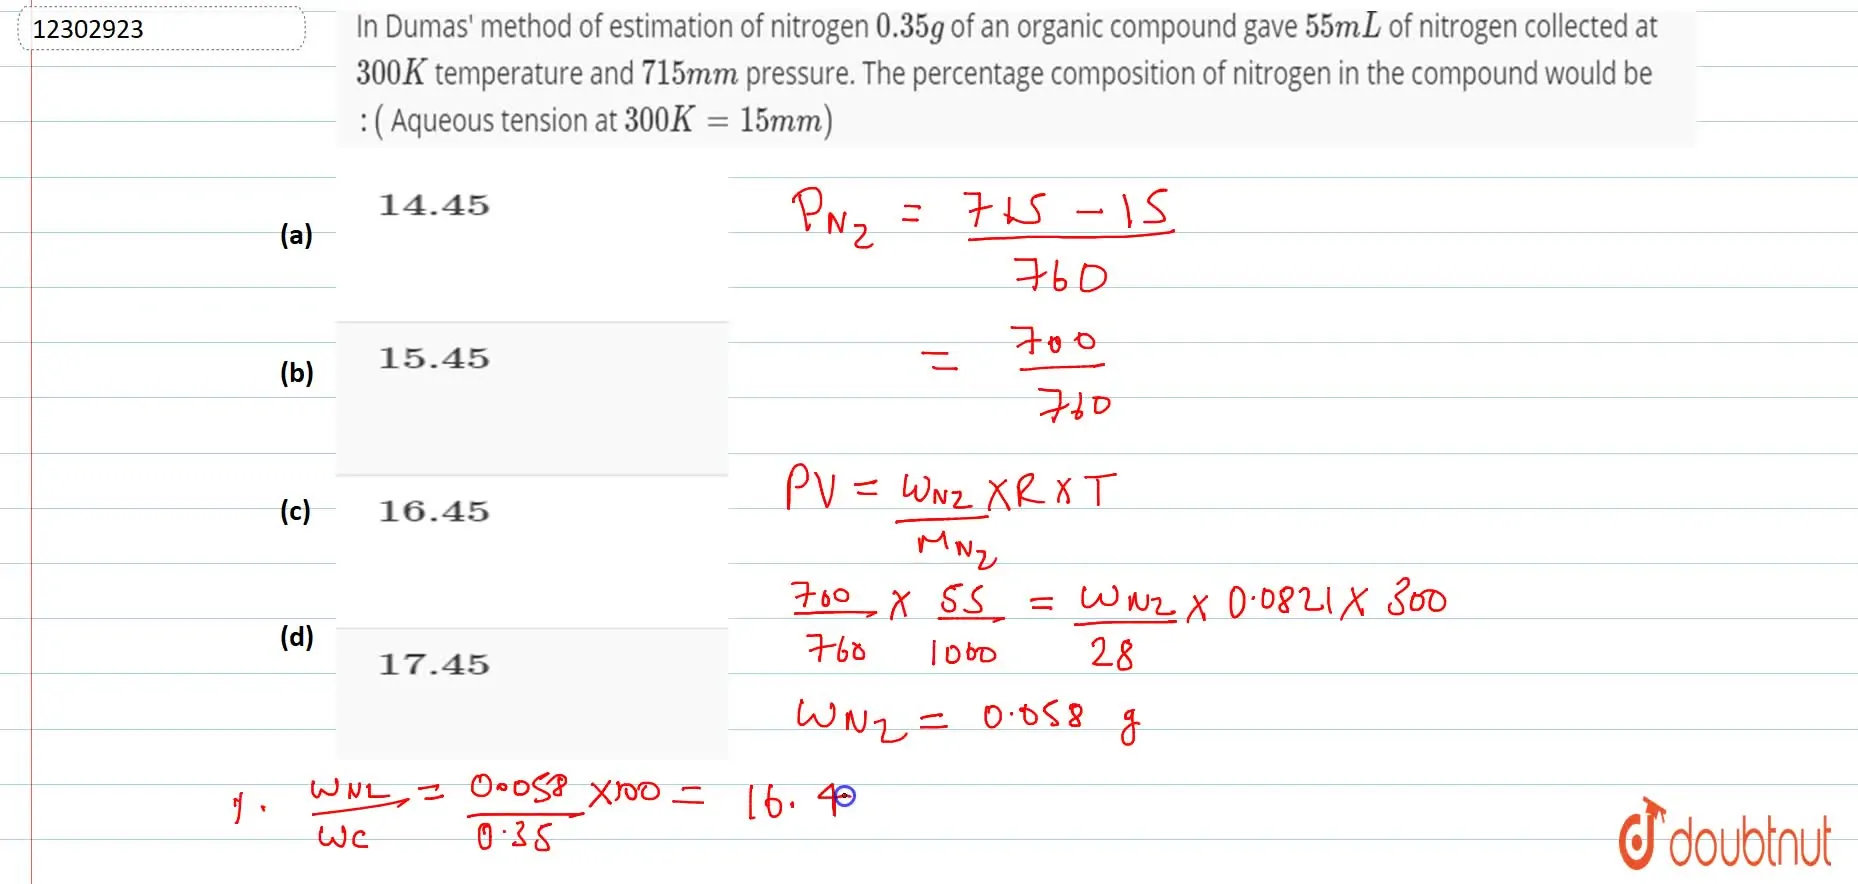 12302923
In Dumas' method of estimation of nitrogen 0.35g of an organic compound gave 55mL of nitrogen collected at
300K temperature and 715mm pressure. The percentage composition of nitrogen in the compound would be
: ( Aqueous tension at 300K = 15mm)
(a) 14.45
(b) 15.45
(c) 16.45
(d) 17.45
P_N2 = 715 - 15 / 760
= 700 / 760
PV = W_N2 / M_N2 × R × T
700 / 760 × 55 / 1000 = W_N2 / 28 × 0.0821 × 300
W_N2 = 0.058 g
%. W_N2 / W_C = 0.058 / 0.35 × 100 = 16.4
doubtnut